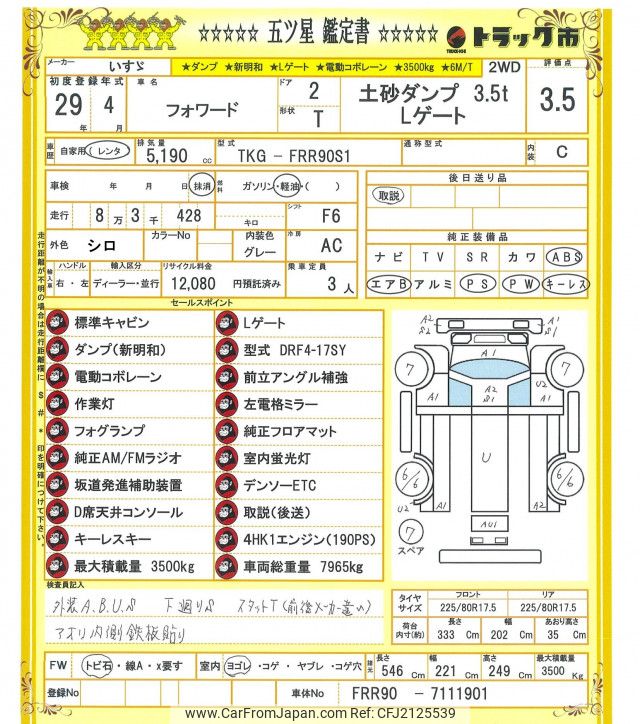 ☆☆☆☆☆ 五ツ星 鑑定書 ☆☆☆☆☆ トラック市
メーカー いすゞ ★ダンプ ★新明和 ★Lゲート ★電動コボレーン ★3500kg ★6M/T 2WD 評価点
初度登録年式 車名 ドア 2 土砂ダンプ 3.5t 3.5
29年 4月 フォワード 形状 T Lゲート
車歴 自家用 レンタ 排気量 5,190 cc 型式 TKG - FRR90S1 通称型式 内装 C
車検 年 月 日 抹消 燃料 ガソリン・軽油・( ) 後日送り品
走行 8万 3千 428 キロ シフト F6 取説
外色 シロ カラーNo 内装色 グレー 冷房 AC 純正装備品
ナビ TV SR カワ ABS
輸入車 ハンドル 右・左 輸入区分 ディーラー・並行 リサイクル料金 12,080 円預託済み 乗車定員 3人 エアB アルミ PS PW キーレス
走行距離が不明の場合は走行距離欄に $ # * 印を明確につけて下さい。
セールスポイント
標準キャビン Lゲート
ダンプ(新明和) 型式 DRF4-17SY
電動コボレーン 前立アングル補強
作業灯 左電格ミラー
フォグランプ 純正フロアマット
純正AM/FMラジオ 室内蛍光灯
坂道発進補助装置 デンソーETC
D席天井コンソール 取説(後送)
キーレスキー 4HK1エンジン(190PS)
最大積載量 3500kg 車両総重量 7965kg
A2 S1 A1 S1
A1
7 7
A1 A2 S1 U2 A1
U
6/6 6/6
A1 A1 U2
AU1
7
スペア
検査員記入
外装A.B.U.S 下廻りS スタットT(前後メーカー違い)
アオリ内側鉄板貼り
タイヤサイズ フロント 225/80R17.5 リア 225/80R17.5
荷台内寸(約) 長さ 333 Cm 幅 202 Cm あおり高さ 35 Cm
FW トビ石・線A・x要す 室内 ヨゴレ・コゲ・ヤブレ・コゲ穴 長さ 546 Cm 幅 221 Cm 高さ 249 Cm 最大積載量 3500 Kg
登録No 車体No FRR90 - 7111901
www.CarFromJapan.com Ref: CFJ2125539